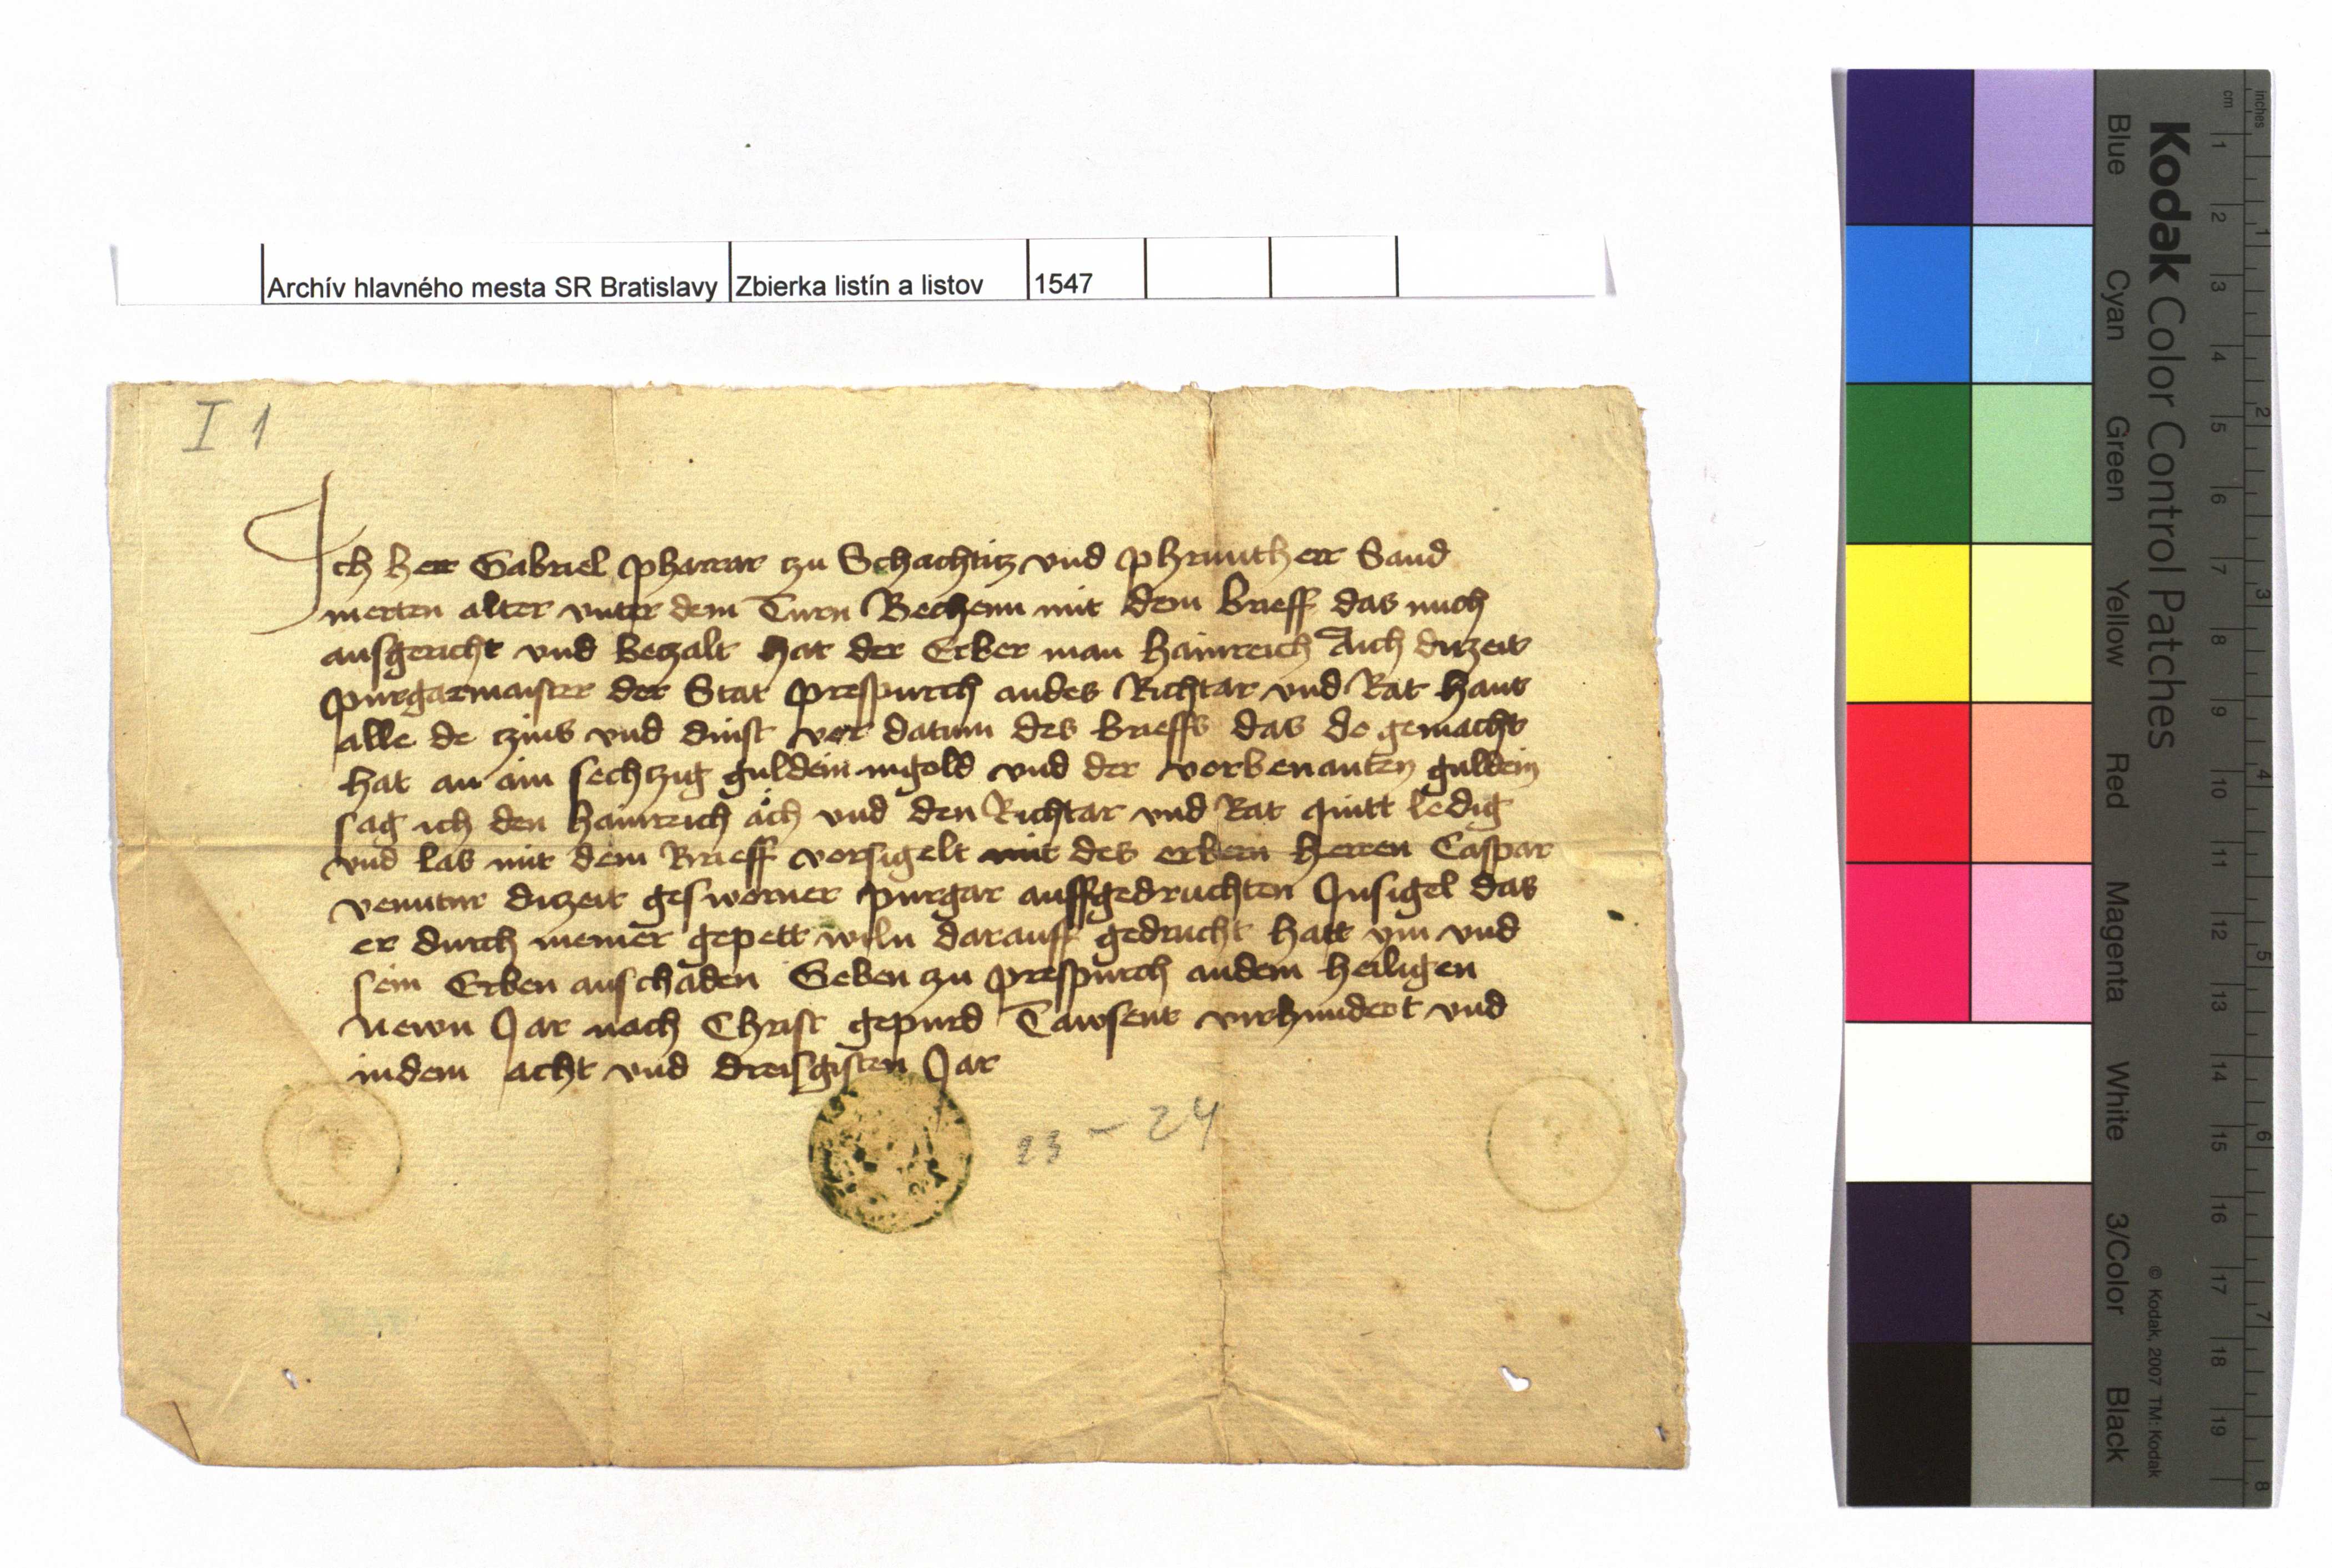 Archív hlavného mesta SR Bratislavy Zbierka listín a listov 1547
I 1
Ich herr Gabriel pharrar zu Schachtitz vnd phruntherr Sand
merten alter vnter dem Turn Bechenn mit dem brieff das mich
ausgericht vnd betzalt hat der Erber man hainreich Aich dizeit
purgarmaister der Stat prespurch andes Richtar vnd Rat hant
alle de zins vnd dinst vor datum des brieffs das do gemacht
hat an ain sechtzig guldein ingold vnd der vorbenanten guldein
sag ich den hainreich ach vnd den Richtar vnd Rat quitt ledig
vnd los mit dem Brieff vorsigelt mit des erbern herren Caspar
ventur dizeit gesworner purgar auffgedruchten Insigel das
er durch meiner gepett wiln darauff gedrucht hatt ym vnd
sein Erben anschaden Geben zu prespurch andem heiligen
Newn Jar nach Christ gepurd Tawsent virhundert vnd
indem acht vnd dreisgisten Jar
23 - 24
Kodak Color Control Patches
Blue Cyan Green Yellow Red Magenta White 3/Color Black
© Kodak, 2007 TM: Kodak
cm 1 2 3 4 5 6 7 8 9 10 11 12 13 14 15 16 17 18 19
inches 1 2 3 4 5 6 7 8